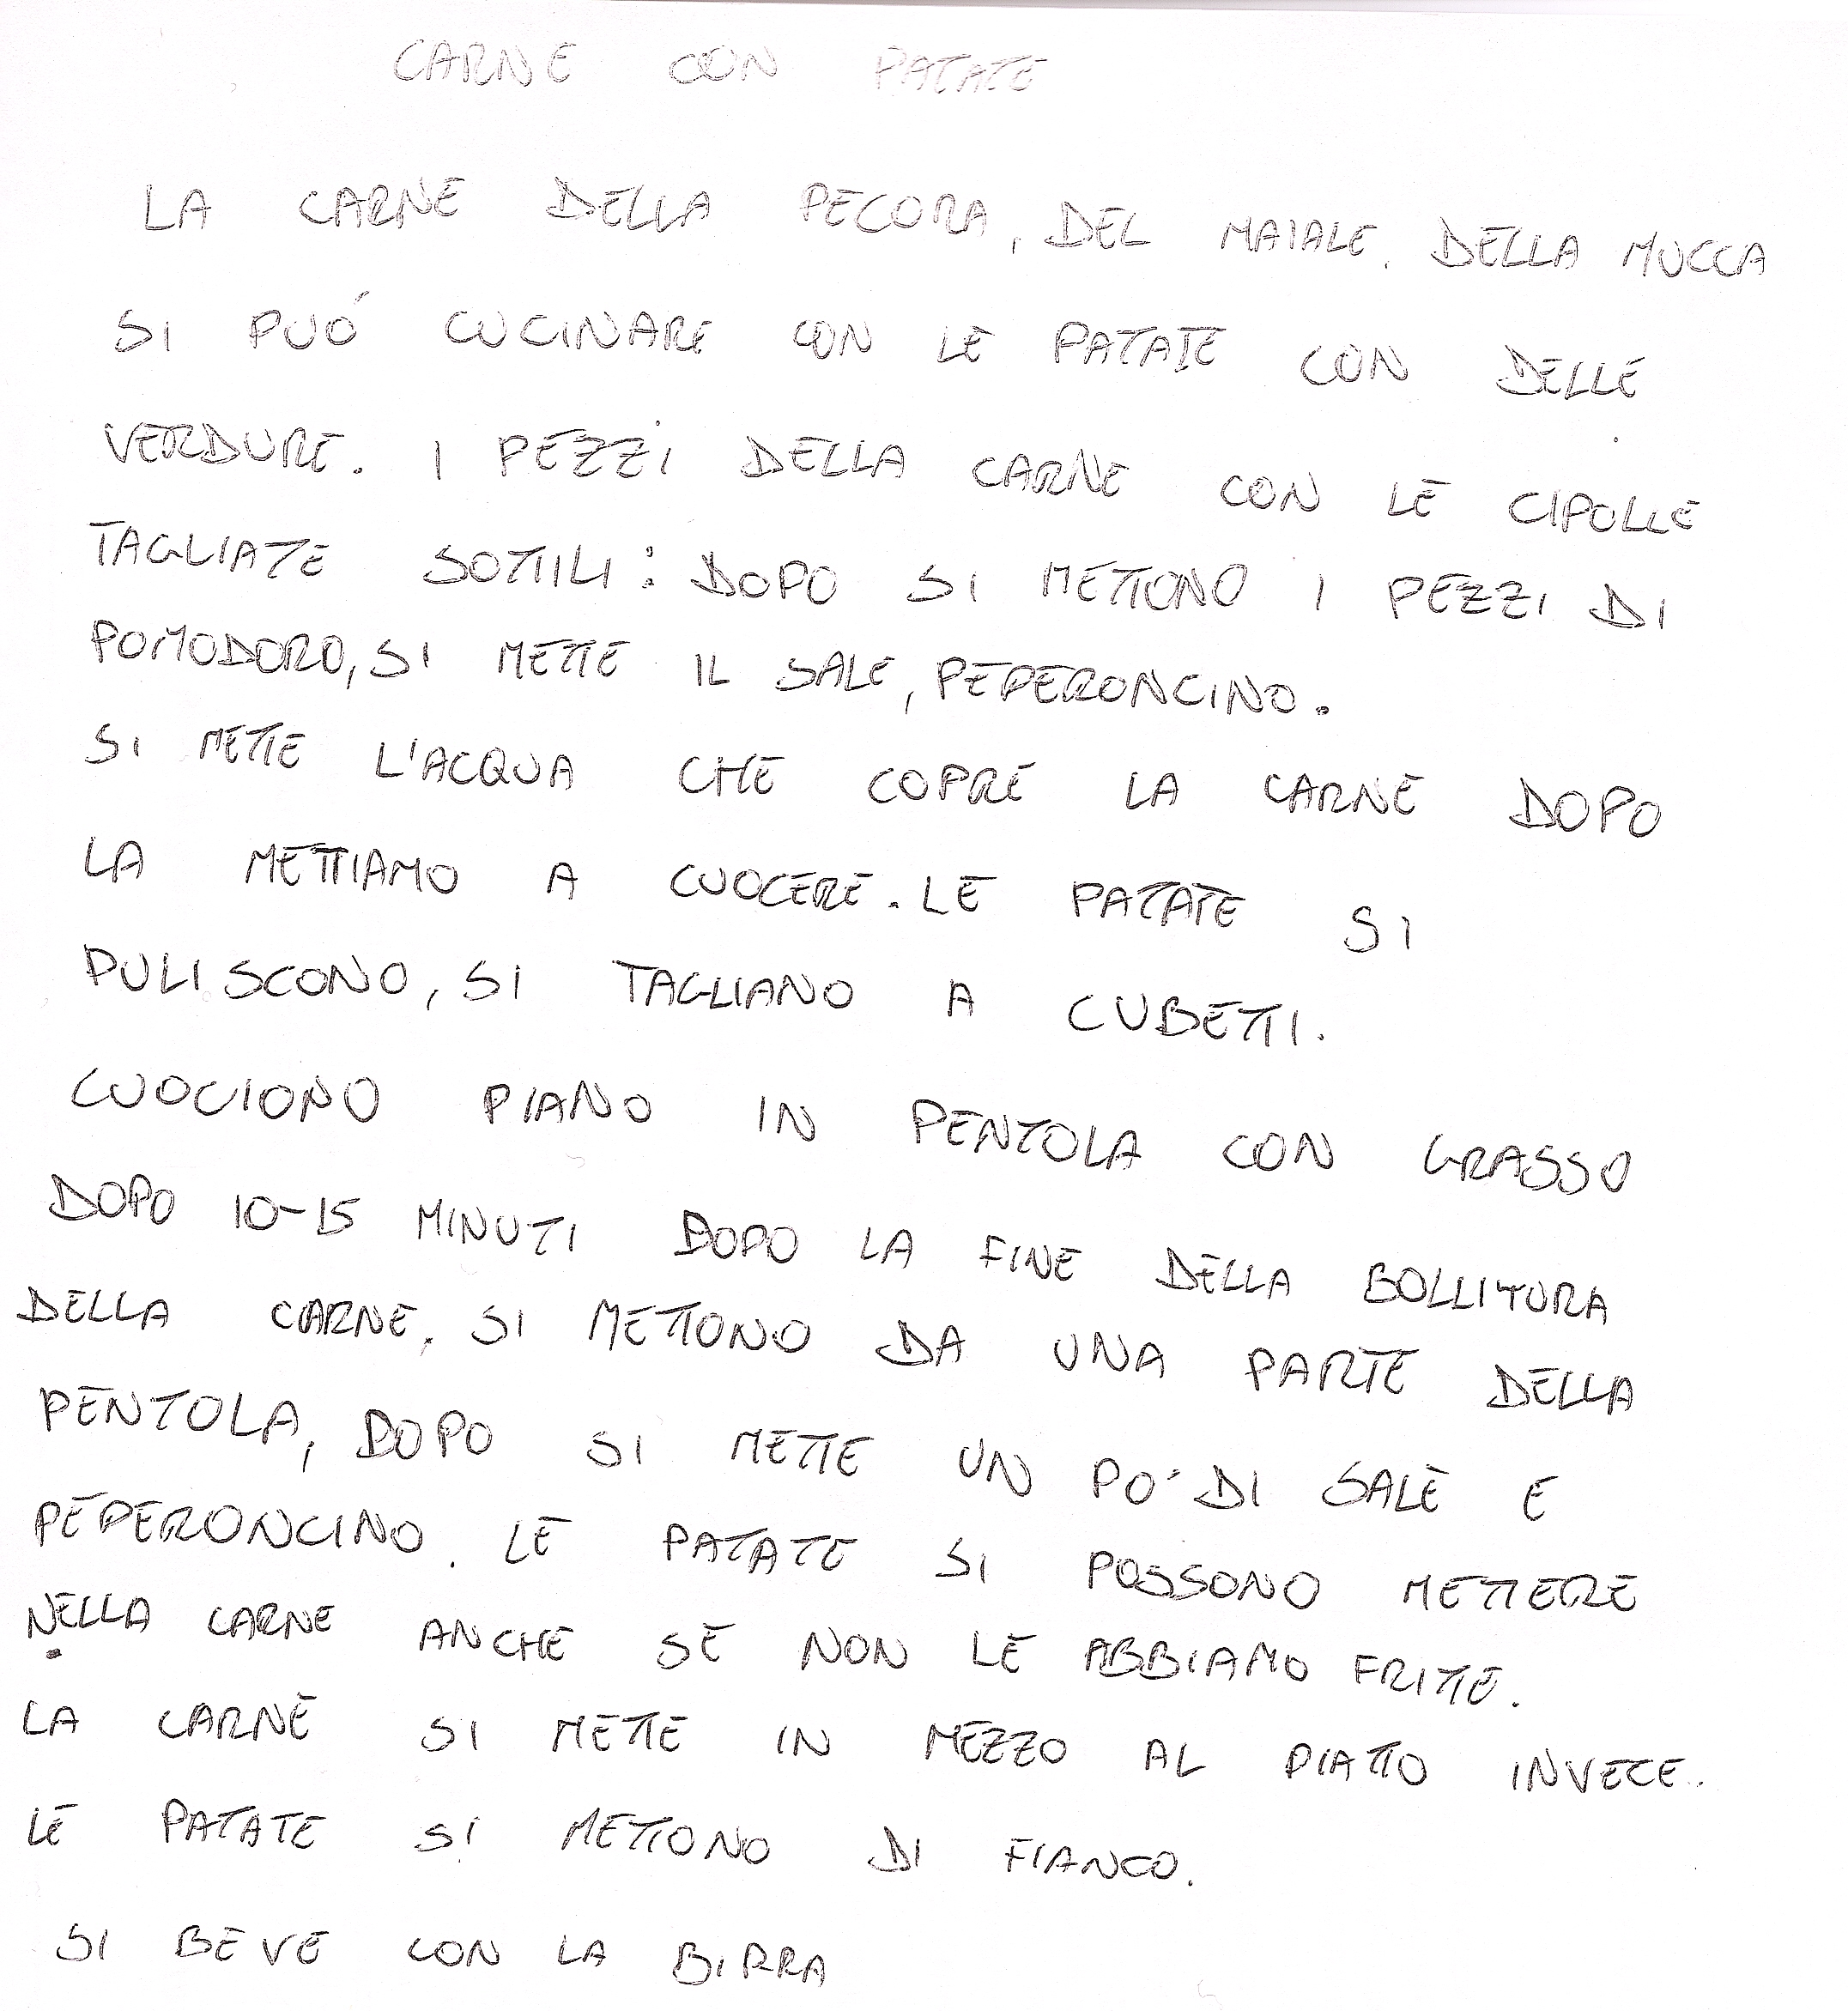 CARNE CON PATATE
LA CARNE DELLA PECORA, DEL MAIALE, DELLA MUCCA
SI PUÓ CUCINARE CON LE PATATE CON DELLE
VERDURE. I PEZZI DELLA CARNE CON LE CIPOLLE
TAGLIATE SOTTILI: DOPO SI METTONO I PEZZI DI
POMODORO, SI METTE IL SALE, PEPERONCINO.
SI METTE L'ACQUA CHE COPRE LA CARNE DOPO
LA METTIAMO A CUOCERE. LE PATATE SI
PULISCONO, SI TAGLIANO A CUBETTI.
CUOCIONO PIANO IN PENTOLA CON GRASSO
DOPO 10-15 MINUTI DOPO LA FINE DELLA BOLLITURA
DELLA CARNE. SI METTONO DA UNA PARTE DELLA
PENTOLA, DOPO SI METTE UN PO' DI SALE E
PEPERONCINO. LE PATATE SI POSSONO METTERE
NELLA CARNE ANCHE SE NON LE ABBIAMO FRITTE.
LA CARNE SI METTE IN MEZZO AL PIATTO INVECE.
LE PATATE SI METTONO DI FIANCO.
SI BEVE CON LA BIRRA